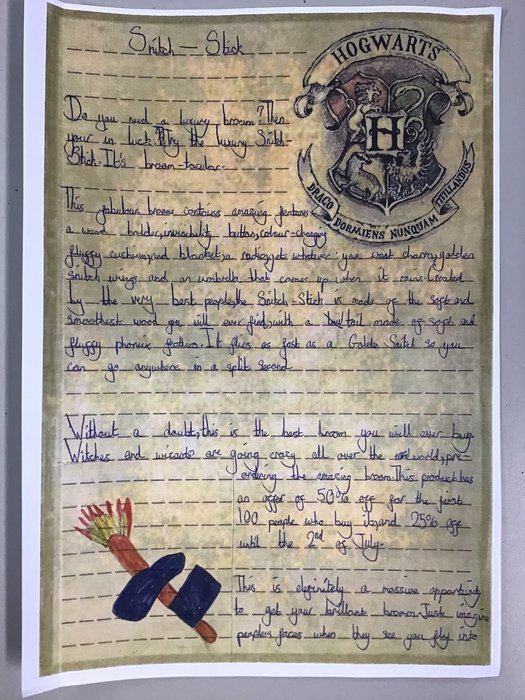 Snitch - Stick
HOGWARTS
H
DRACO DORMIENS NUNQUAM TITILLANDUS
Do you need a luxury broom? Then
your in luck? Try the luxury Snitch-
Stick. It's broom-tacular.
This fabulous broom contains amazing features
a wand holder, invisibility button, colour-changing
fluffy cushion, and blanket, a radio, gate whatever you want charm, golden
snitch wings and an umbrella that comes up when it rains. Created
by the very best people, the Snitch-Stick is made of the soft and
smoothest wood you will ever find, with a tail made of soft and
fluffy phoneix feathers. It flies as fast as a Golden Snitch so you
can go anywhere in a split second.
Without a doubt, this is the best broom you will ever buy.
Witches and wizards are going crazy all over the world, pre-
ordering the amazing broom. This product has
an offer of 50% off for the first
100 people who buy it, and 25% off
until the 2nd of July.
This is definitely a massive opportunity
to get your brilliant broom. Just imagine
peoples faces when they see you fly into